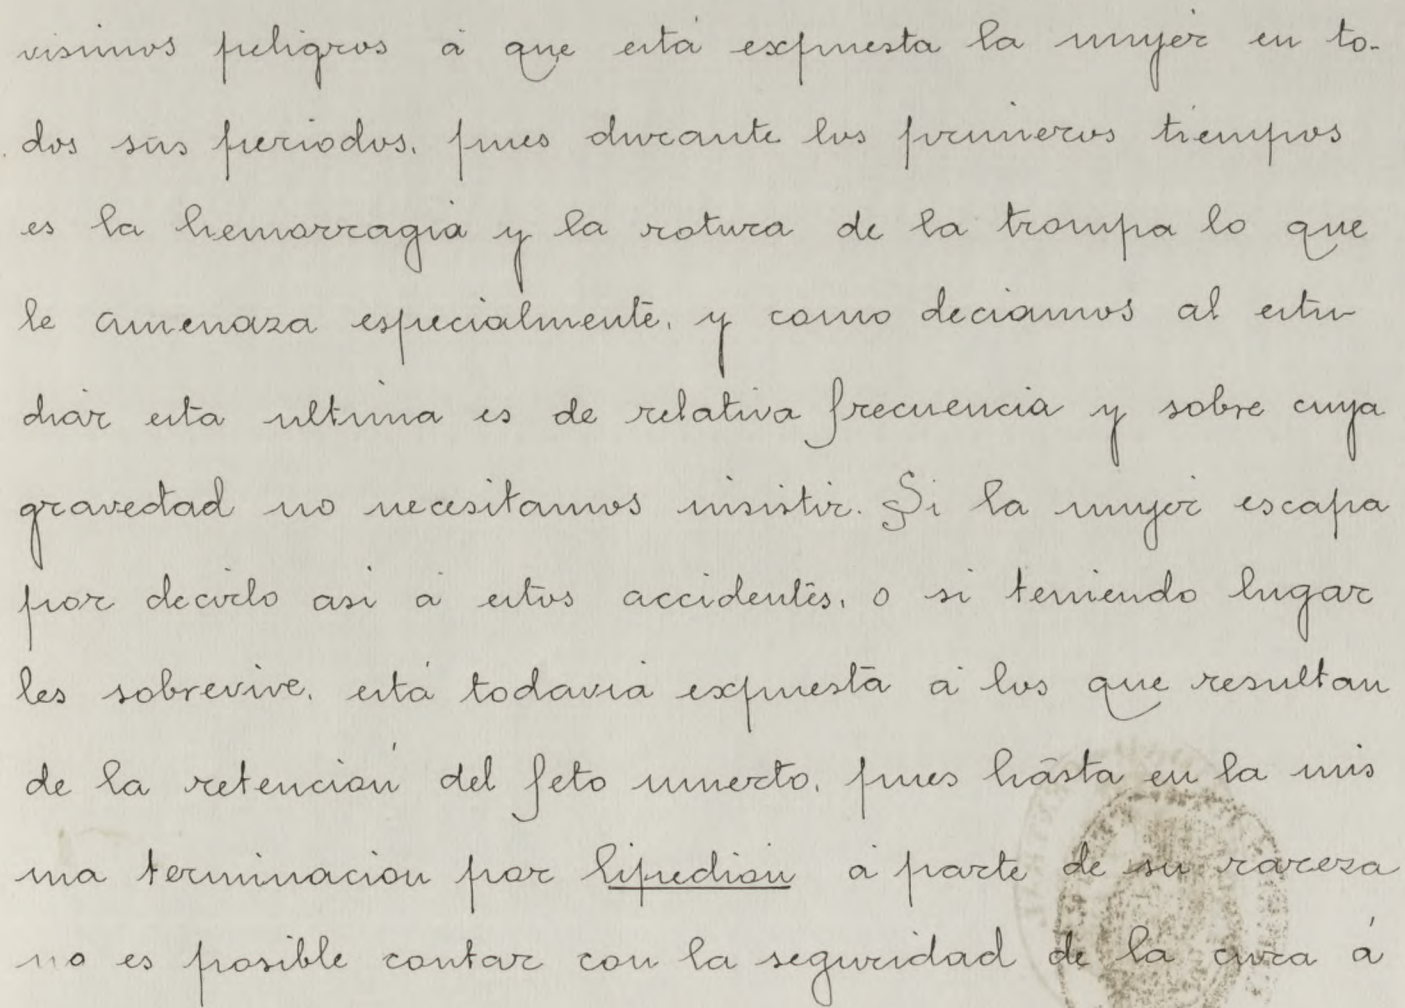 visimos peligros á que está expuesta la mujer en to-
dos sus periodos, pues durante los primeros tiempos
es la hemorragia y la rotura de la trompa lo que
le amenaza especialmente, y como deciamos al estu-
diar esta ultima es de relativa frecuencia y sobre cuya
gravedad no necesitamos insistir. Si la mujer escapa
por decirlo asi á estos accidentes, o si teniendo lugar
les sobrevive, está todavia expuesta á los que resultan
de la retención del feto muerto, pues hasta en la mis
ma terminacion por lipedion á parte de su rareza
no es posible contar con la seguridad de la cura á